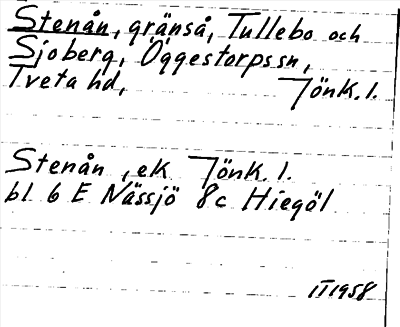 Stenån, gränså, Tullebo och
Sjöberg, Öggestorps sn,
Tveta hd, Jönk. l.
Stenån, ek Jönk. l.
bl 6 E Nässjö 8c Hiegöl
II 1958